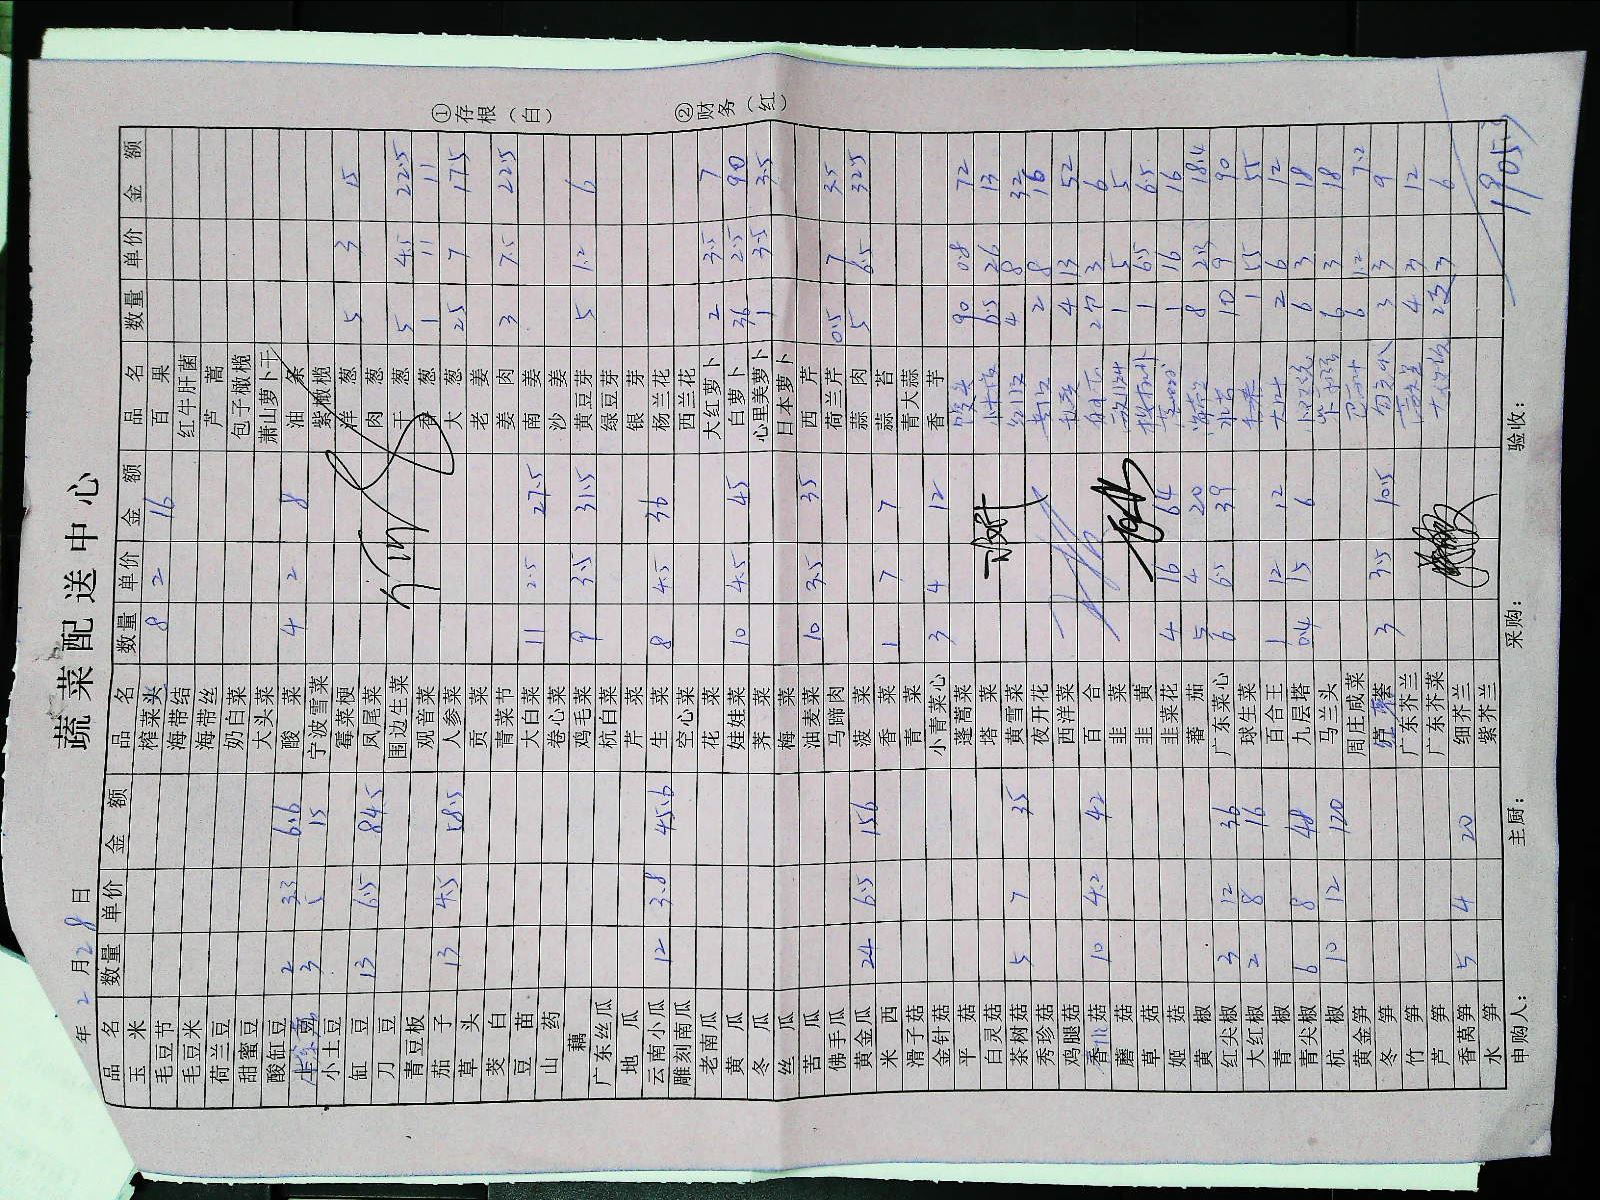 蔬菜配送中心
年 2 月 28 日
品名 数量 单价 金额 品名 数量 单价 金额 品名 数量 单价 金额
玉米 榨菜头 8 2 16 百果
毛豆节 海带结 红牛肝菌
毛豆米 海带丝 芦蒿
荷兰豆 奶白菜 包子橄榄
甜蜜豆 大头菜 萧山萝卜干
酸缸豆 2 3.3 6.6 酸菜 4 2 8 油条
3 5 15 宁波雪菜 紫橄榄
小土豆 霉菜梗 洋葱 5 3 15
缸豆 13 6.5 84.5 凤尾菜 肉葱
刀豆 围边生菜 干葱 5 4.5 22.5
青豆板 观音菜 香葱 1 11 11
茄子 13 4.5 58.5 人参菜 大葱 2.5 7 17.5
草头 贡菜 老姜
茭白 青菜节 姜肉 3 7.5 22.5
豆苗 大白菜 11 2.5 27.5 南姜
山药 卷心菜 沙姜
藕 鸡毛菜 9 3.5 31.5 黄豆芽 5 1.2 6
广东丝瓜 杭白菜 绿豆芽
地瓜 芹菜 银芽
云南小瓜 12 3.8 45.6 生菜 8 4.5 36 杨兰花
雕刻南瓜 空心菜 西兰花
老南瓜 花菜 大红萝卜 2 3.5 7
黄瓜 娃娃菜 10 4.5 45 白萝卜 36 2.5 90
冬瓜 荠菜 心里美萝卜 1 3.5 3.5
丝瓜 梅菜 日本萝卜
苦瓜 油麦菜 10 3.5 35 西芹
佛手瓜 马蹄肉 荷兰芹 0.5 7 3.5
黄金瓜 24 6.5 156 菠菜 蒜肉 5 6.5 32.5
米西 香菜 1 7 7 蒜苔
滑子菇 青菜 青大蒜
金针菇 小青菜心 3 4 12 香芋
平菇 蓬蒿菜 90 0.8 72
白灵菇 塔菜 2.6 13
茶树菇 5 7 35 黄雪菜 4 8 32
秀珍菇 夜开花 2 8 16
鸡腿菇 西洋菜 4 13 52
香菇 10 4.2 42 百合 3 6
蘑菇 韭菜 1 5 5
草菇 韭黄 1 6.5 6.5
姬菇 韭菜花 4 16 64 1 16 16
黄椒 蕃茄 5 4 20 8 2.3 18.4
红尖椒 3 12 36 广东菜心 6 6.5 39 10 9 90
大红椒 2 8 16 球生菜 1 55 55
青椒 百合王 1 12 12 2 6 12
青尖椒 6 8 48 九层塔 0.4 15 6 6 3 18
杭椒 10 12 120 马兰头 6 3 18
黄金笋 周庄咸菜 6 1.2 7.2
冬笋 3 3.5 10.5 3 3 9
竹笋 广东芥兰 4 3 12
芦笋 广东芥菜 3 6
香莴笋 5 4 20 细芥兰
水笋 紫芥兰
申购人： 主厨： 采购： 验收：
①存根（白）
②财务（红）